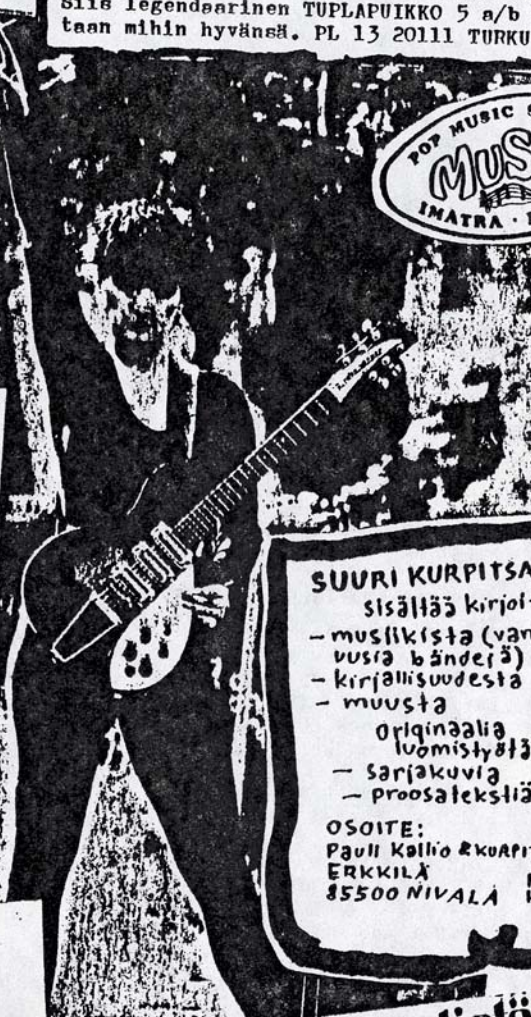 Siis legendaarinen TUPLAPUIKKO 5 a/b
taan mihin hyvänsä. PL 13 20111 TURKU
POP MUSIC
MUS
IMATRA ·
SUURI KURPITSA
sisältää kirjoi
- musiikista (van
uusia bändejä)
- kirjallisuudesta
- muusta
originaalia
luomistyötä
- sarjakuvia
- proosatekstiä
OSOITE:
Pauli Kallio & KURPI
ERKKILÄ
85500 NIVALA